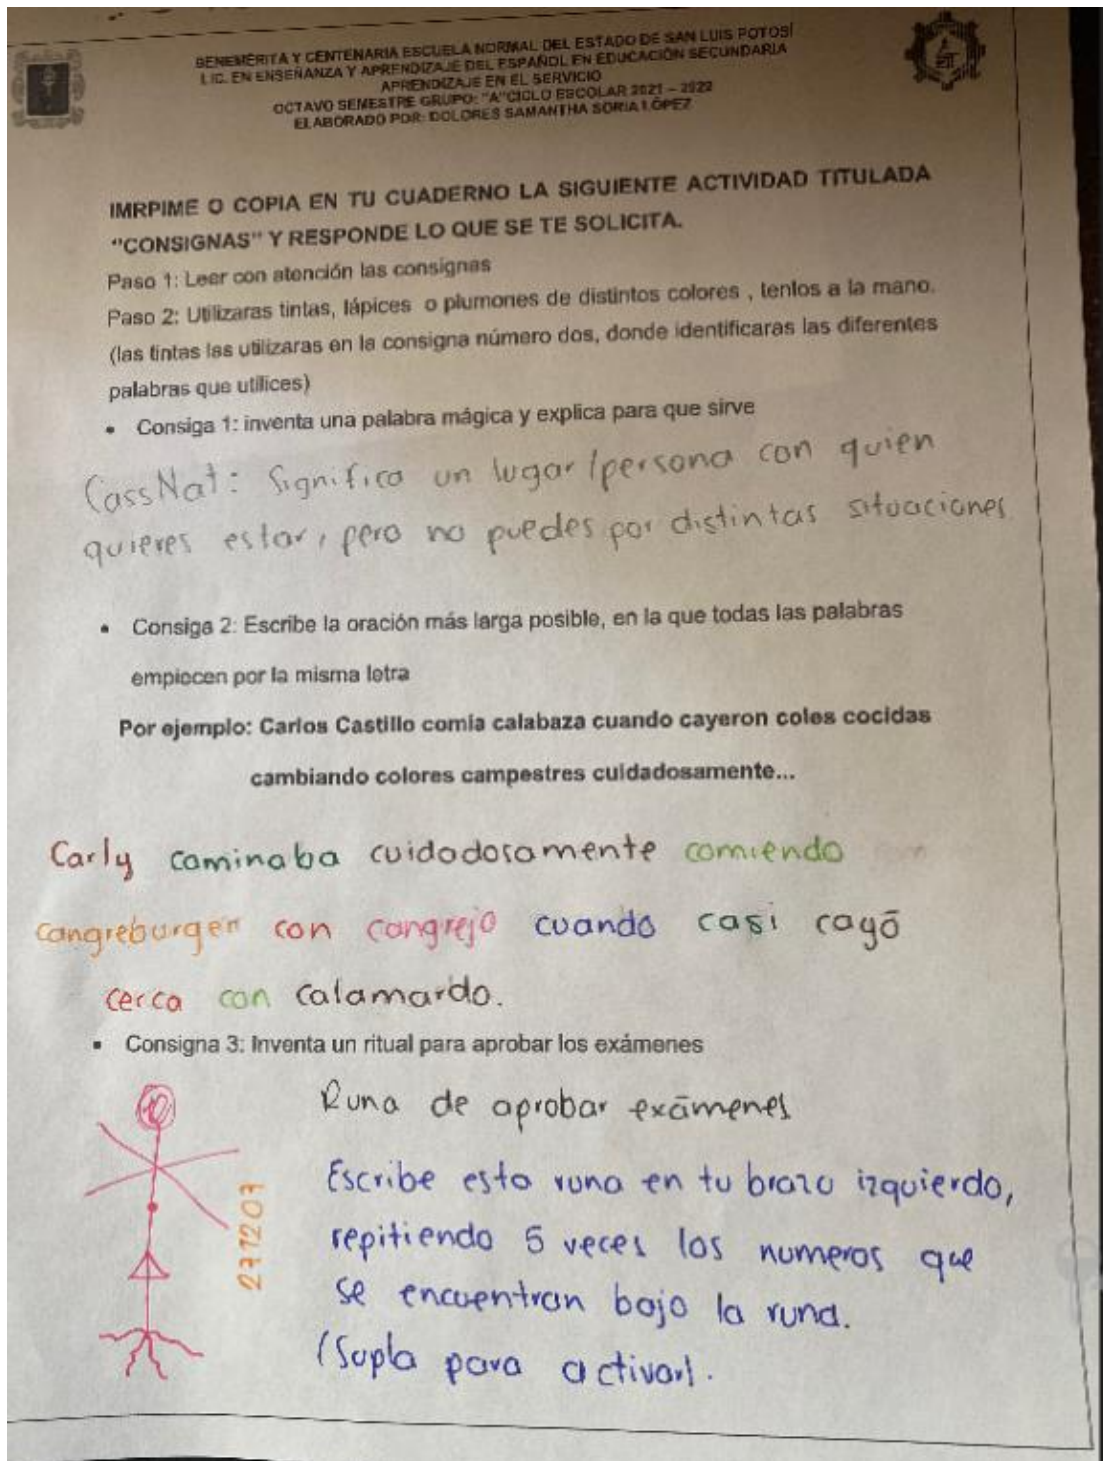 BENEMÉRITA Y CENTENARIA ESCUELA NORMAL DEL ESTADO DE SAN LUIS POTOSÍ
LIC. EN ENSEÑANZA Y APRENDIZAJE DEL ESPAÑOL EN EDUCACIÓN SECUNDARIA
APRENDIZAJE EN EL SERVICIO
OCTAVO SEMESTRE GRUPO: "A" CICLO ESCOLAR 2021 – 2022
ELABORADO POR: DOLORES SAMANTHA SORIA LÓPEZ
IMRPIME O COPIA EN TU CUADERNO LA SIGUIENTE ACTIVIDAD TITULADA
"CONSIGNAS" Y RESPONDE LO QUE SE TE SOLICITA.
Paso 1: Leer con atención las consignas
Paso 2: Utilizaras tintas, lápices o plumones de distintos colores , tenlos a la mano.
(las tintas las utilizaras en la consigna número dos, donde identificaras las diferentes
palabras que utilices)
• Consiga 1: inventa una palabra mágica y explica para que sirve
CassNat: Significa un lugar/persona con quien
quieres estar, pero no puedes por distintas situaciones
• Consiga 2: Escribe la oración más larga posible, en la que todas las palabras
empiecen por la misma letra
Por ejemplo: Carlos Castillo comía calabaza cuando cayeron coles cocidas
cambiando colores campestres cuidadosamente...
Carly caminaba cuidadosamente comiendo
cangreburger con cangrejo cuando casi cayó
cerca con calamardo.
▪ Consigna 3: Inventa un ritual para aprobar los exámenes
Runa de aprobar exámenes
Escribe esta runa en tu brazo izquierdo,
repitiendo 5 veces los numeros que
se encuentran bajo la runa.
(Sopla para activar).
271207